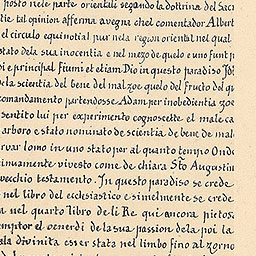 posto nele parte orientali segondo la dottrina del Sacr
tie tal opinion afferma avegna chel comentador Albert
el circulo equinotial pur nela region oriental nel qual
stato dela sua inocentia e nel mezo de quelo e uno funt p
i e principal fiumi et etiam Dio in questo paradiso Id
dela scientia del bene del mal zoe quelo del fructo del q
comandamento partendosse Adam per inobedientia zoe
sentito lui per experimento cognoscette el male ca
arboro e stato nominato de scientia de bene de mal
rvar lomo in uno stato per al quanto tempo Ond
tinuamente vivesto come de chiara Sto Augustin
vecchio testamento. In questo paradiso se crede
nel libro del ecclesiastico e simelmente se crede
a nel quarto libro de li Re qui ancora pietos
emptor el venerdi de la sua passion dela poi la
ala divinita esser stata nel limbo fino al zorno